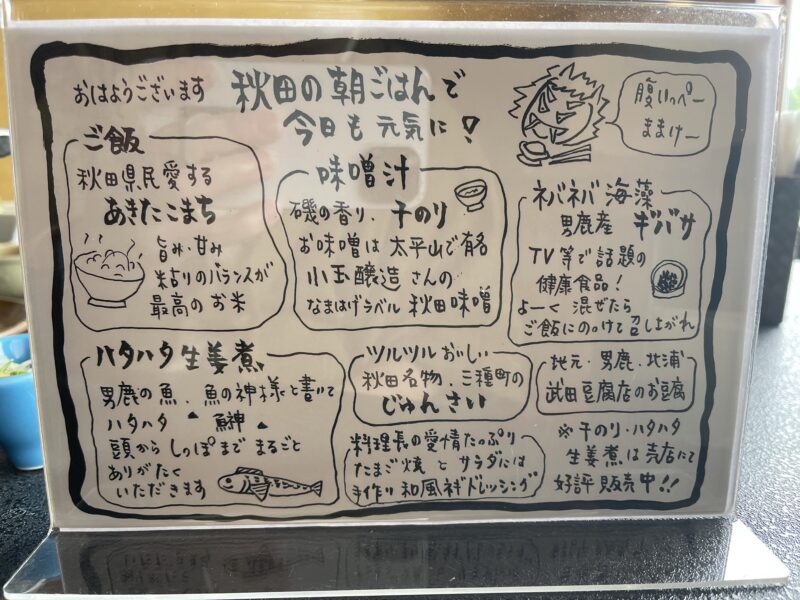 おはようございます
秋田の朝ごはんで
今日も元気に!
腹いっペー
ままけー
ご飯
秋田県民愛する
あきたこまち
旨み・甘み
粘りのバランスが
最高のお米
味噌汁
磯の香り、干のり
お味噌は太平山で有名
小玉醸造さんの
なまはげラベル秋田味噌
ネバネバ海藻
男鹿産 ギバサ
TV等で話題の
健康食品!
よーく混ぜたら
ご飯にのっけて召し上がれ
ハタハタ生姜煮
男鹿の魚、魚の神様と書いて
ハタハタ 鰰
頭からしっぽまでまるごと
ありがたく
いただきます
ツルツルおいしい
秋田名物、三種町の
じゅんさい
地元・男鹿・北浦
武田豆腐店のお豆腐
料理長の愛情たっぷり
たまご焼とサラダには
手作り和風ドレッシング
※干のり・ハタハタ
生姜煮は売店にて
好評販売中!!